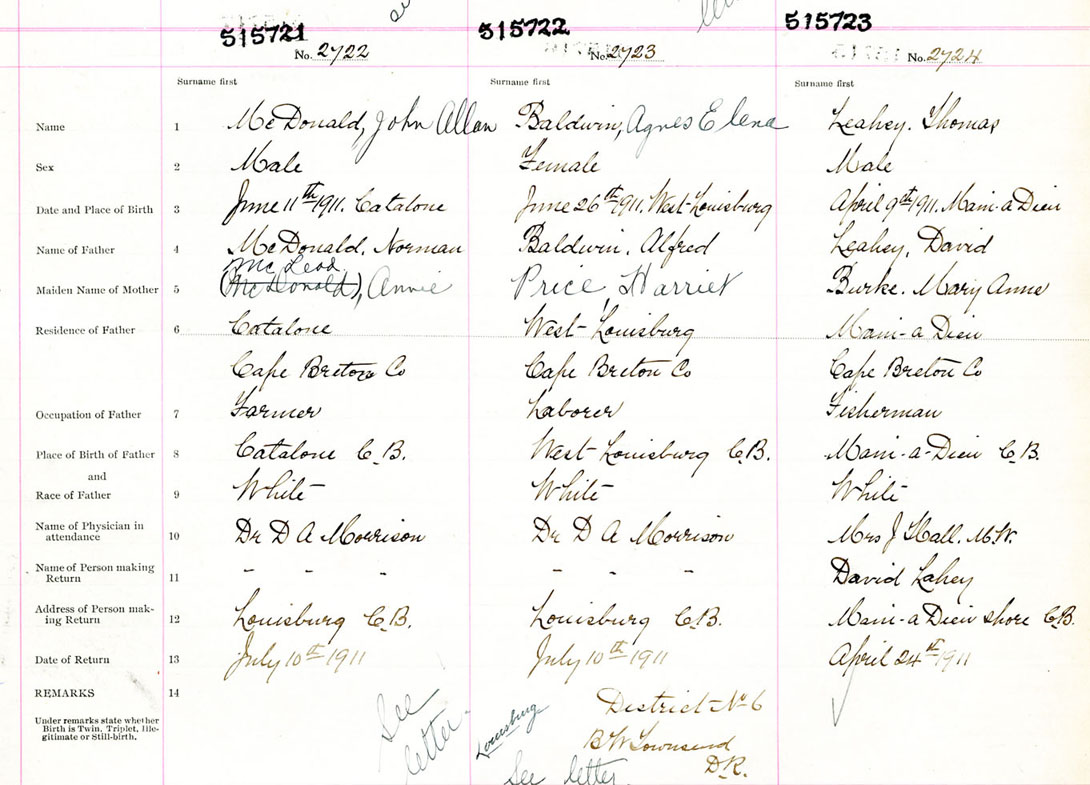 515721 515722 515723
No. 2722 No. 2723 No. 2724
Surname first Surname first Surname first
Name 1 McDonald, John Allan Baldwin, Agnes Elena Leahey. Thomas
Sex 2 Male Female Male
Date and Place of Birth 3 June 11th 1911. Catalone June 26th 1911. West-Louisburg April 9th 1911. Main-a Dieu
Name of Father 4 McDonald, Norman Baldwin, Alfred Leahey, David
Mc Leod
Maiden Name of Mother 5 (McDonald), Annie Price, Harriet Burke. Mary Anne
Residence of Father 6 Catalone West-Louisburg Main-a Dieu
Cape Breton Co Cape Breton Co Cape Breton Co
Occupation of Father 7 Farmer Laborer Fisherman
Place of Birth of Father 8 Catalone C.B. West-Louisburg C.B. Main-a-Dieu C.B.
and
Race of Father 9 White White White
Name of Physician in
attendance 10 Dr D A Morrison Dr D A Morrison Mrs J Hall. M.W.
Name of Person making
Return 11 - - - - - - David Lahey
Address of Person mak-
ing Return 12 Louisburg C.B. Louisburg C.B. Main-a Dieu shore C.B.
Date of Return 13 July 10th 1911 July 10th 1911 April 24th 1911
REMARKS 14
Under remarks state whether
Birth is Twin, Triplet, Ille-
gitimate or Still-birth.
See
letter
Louisburg
District No 6
B W Townsend
D.R.
See letter.